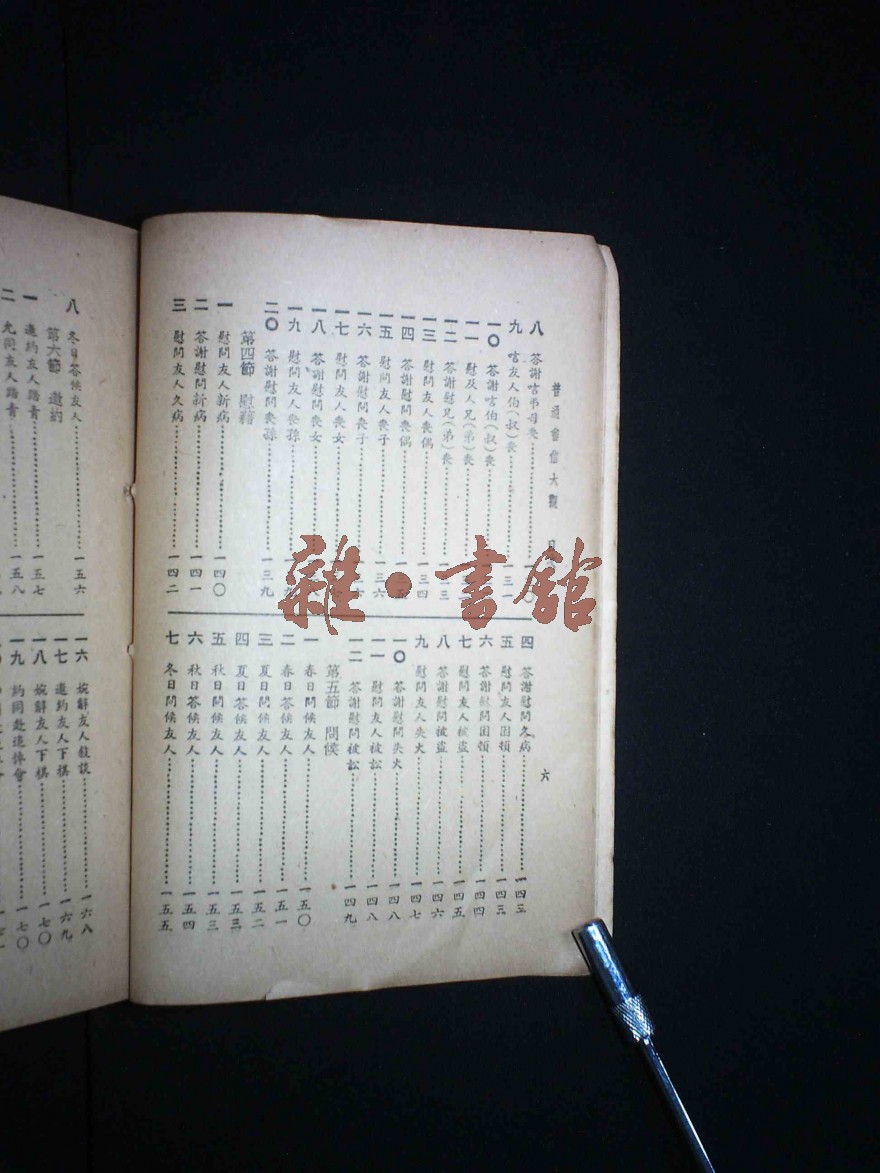 普通書信大觀
六
八 答謝唁弔母喪
九 唁友人伯(叔)喪 一三一
一〇 答謝唁伯(叔)喪
一一 慰友人兄(弟)喪
一二 答謝慰兄(弟)喪
一三 慰問友人喪偶 一三四
一四 答謝慰問喪偶
一五 慰問友人喪子 一三六
一六 答謝慰問喪子
一七 慰問友人喪女
一八 答謝慰問喪女
一九 慰問友人喪孫
二〇 答謝慰問喪孫 一三九
第四節 慰藉
一 慰問友人新病 一四〇
二 答謝慰問新病 一四一
三 慰問友人久病 一四二
四 答謝慰問久病 一四三
五 慰問友人困頓 一四三
六 答謝慰問困頓 一四四
七 慰問友人被盜 一四五
八 答謝慰問被盜 一四六
九 慰問友人失火 一四七
一〇 答謝慰問失火 一四八
一一 慰問友人被訟 一四八
一二 答謝慰問被訟 一四九
第五節 問候
一 春日問候友人 一五〇
二 春日答候友人 一五一
三 夏日問候友人 一五二
四 夏日答候友人 一五三
五 秋日問候友人 一五三
六 秋日答候友人 一五四
七 冬日問候友人 一五五
八 冬日答候友人 一五六
第六節 邀約
一 邀約友人踏青 一五七
二 允同友人踏青 一五八
一六 婉辭友人敍談 一六八
一七 邀約友人下棋 一六九
一八 婉辭友人下棋 一七〇
一九 約同赴追悼會 一七〇
雜·書館